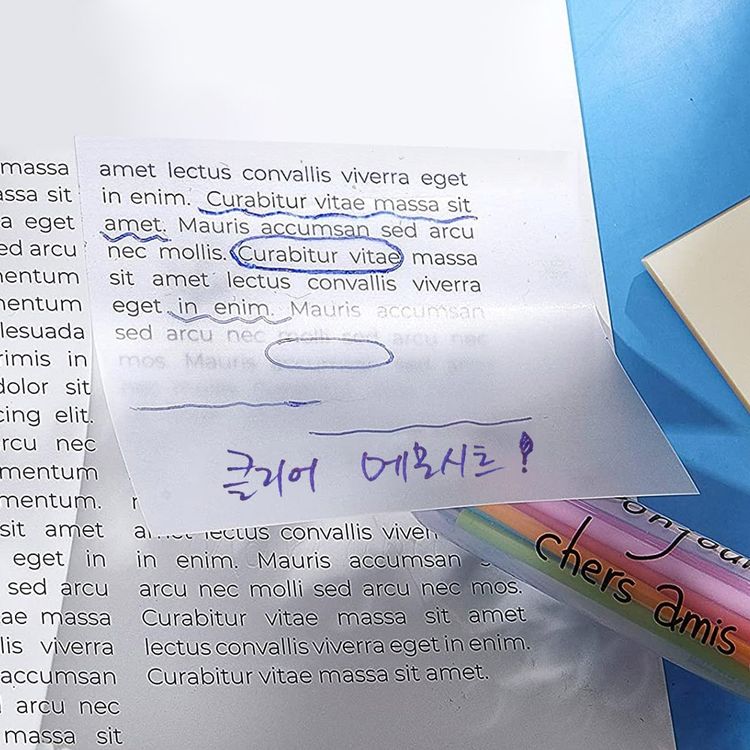 massa
assa sit
a eget
ed arcu
mentum
mentum
lesuada
rimis in
dolor sit
cing elit.
rcu nec
mentum
mentum.
sit amet
eget in
sed arcu
ae massa
lis viverra
accumsan
arcu nec
massa sit
amet lectus convallis viverra eget
in enim. Curabitur vitae massa sit
amet. Mauris accumsan sed arcu
nec mollis. Curabitur vitae massa
sit amet lectus convallis viverra
eget in enim. Mauris accumsan
sed arcu nec molli sed arcu nec
mos. Mauris accumsan
클리어 메모시트!
lectus convallis viver
in enim. Mauris accumsan
arcu nec molli sed arcu nec mos.
Curabitur vitae massa sit amet
lectus convallis viverra eget in enim.
Curabitur vitae massa sit amet.
onjour
chers amis